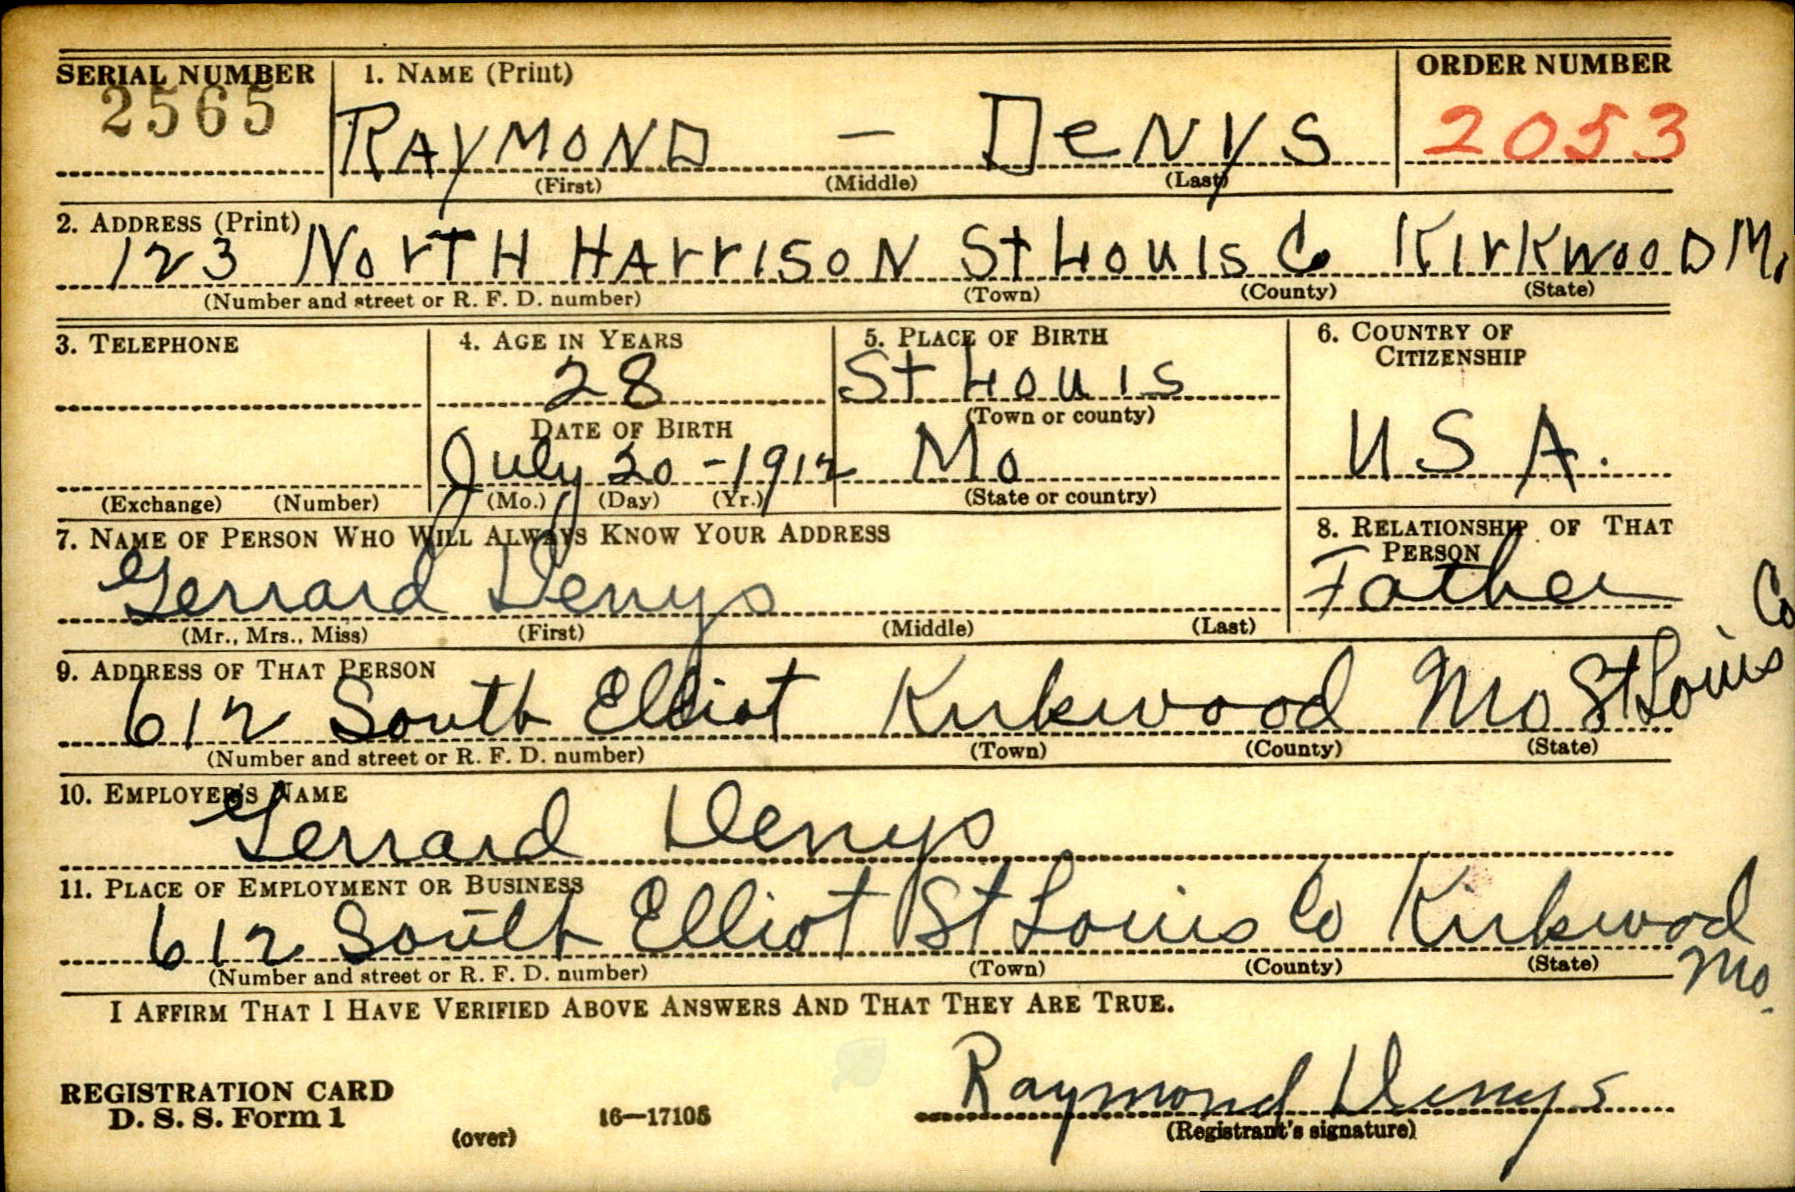 SERIAL NUMBER 1. NAME (Print) ORDER NUMBER
2565 RAYMOND — DeNYS 2053
(First) (Middle) (Last)
2. ADDRESS (Print)
123 NorTH HArrISoN St Louis Co KIrKwooD Mo
(Number and street or R. F. D. number) (Town) (County) (State)
3. TELEPHONE 4. AGE IN YEARS 5. PLACE OF BIRTH 6. COUNTRY OF CITIZENSHIP
28 St Louis
DATE OF BIRTH (Town or county)
July 20 - 1912 Mo U S A.
(Exchange) (Number) (Mo.) (Day) (Yr.) (State or country)
7. NAME OF PERSON WHO WILL ALWAYS KNOW YOUR ADDRESS 8. RELATIONSHIP OF THAT PERSON
Gerrard Denys Father
(Mr., Mrs., Miss) (First) (Middle) (Last)
9. ADDRESS OF THAT PERSON
612 South Elliot Kirkwood Mo St Louis Co
(Number and street or R. F. D. number) (Town) (County) (State)
10. EMPLOYER'S NAME
Gerrard Denys
11. PLACE OF EMPLOYMENT OR BUSINESS
612 South Elliot St Louis Co Kirkwood Mo.
(Number and street or R. F. D. number) (Town) (County) (State)
I AFFIRM THAT I HAVE VERIFIED ABOVE ANSWERS AND THAT THEY ARE TRUE.
REGISTRATION CARD Raymond Denys
D. S. S. Form 1 (over) 16—17105 (Registrant's signature)